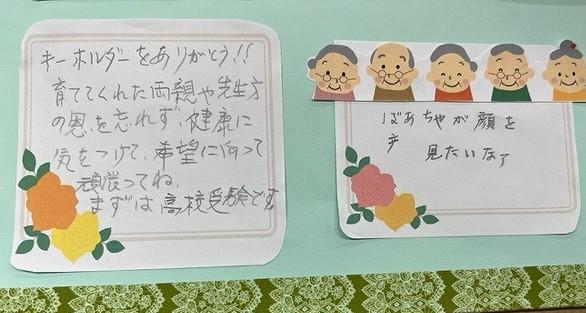 キーホルダーをありがとう!!
育ててくれた両親や先生方
の恩を忘れず、健康に
気をつけて、希望に向って
頑張ってね。
まずは高校受験です
ばあちゃが顔を
見たいなア